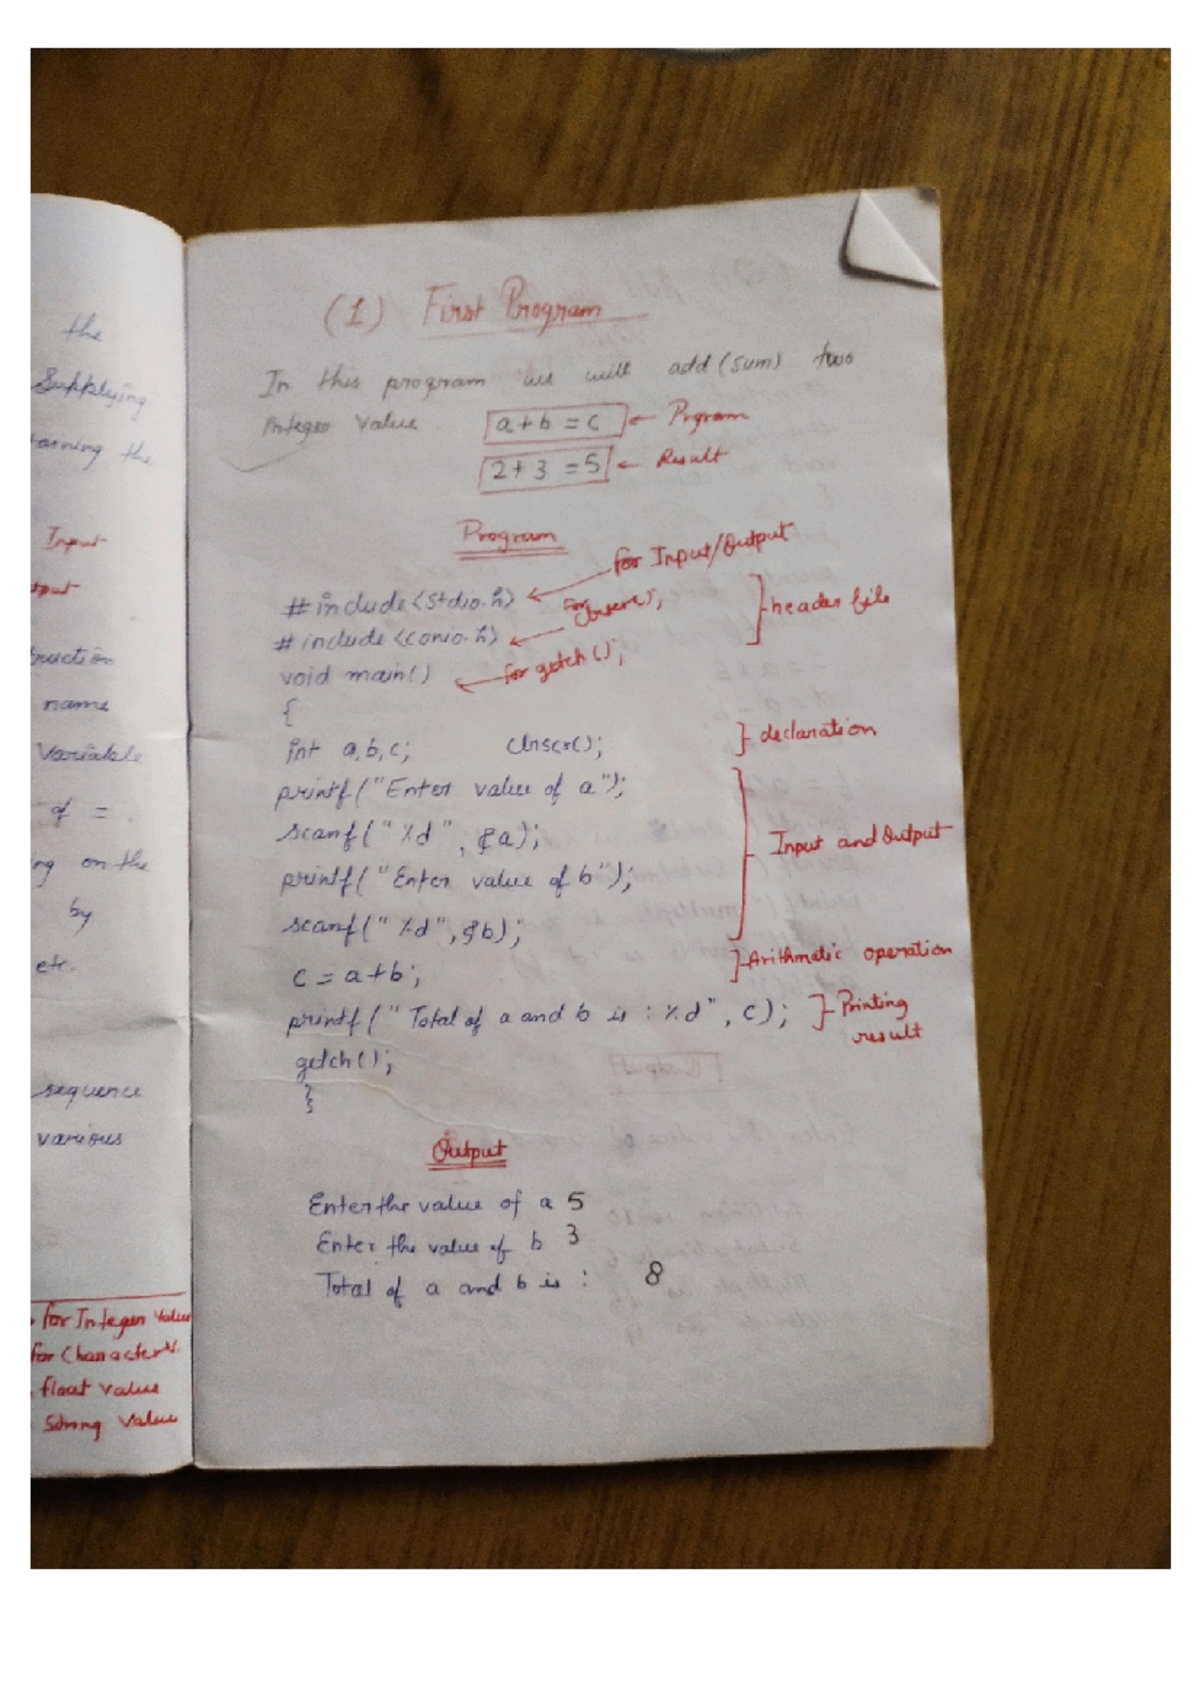 the
Supplying
the
Input
name
Variable
of =
on the
by
etc.
sequence
various
for Integer Value
for Character V.
float value
String Value
(1) First Program
In this program we will add (sum) two
Integer Value a+b = c ← Prgram
2+3 = 5 ← Result
Program
for Input/Output
#include<stdio.h>
for clrscr();
header file
#include <conio.h>
for getch();
void main()
{
int a,b,c; clrscr(); } declaration
printf("Enter value of a");
scanf("%d", &a);
Input and Output
printf("Enter value of b");
scanf("%d", &b);
c = a+b; } Arithmatic operation
printf("Total of a and b is : %d", c); } Printing result
getch();
}
Output
Enter the value of a 5
Enter the value of b 3
Total of a and b is : 8